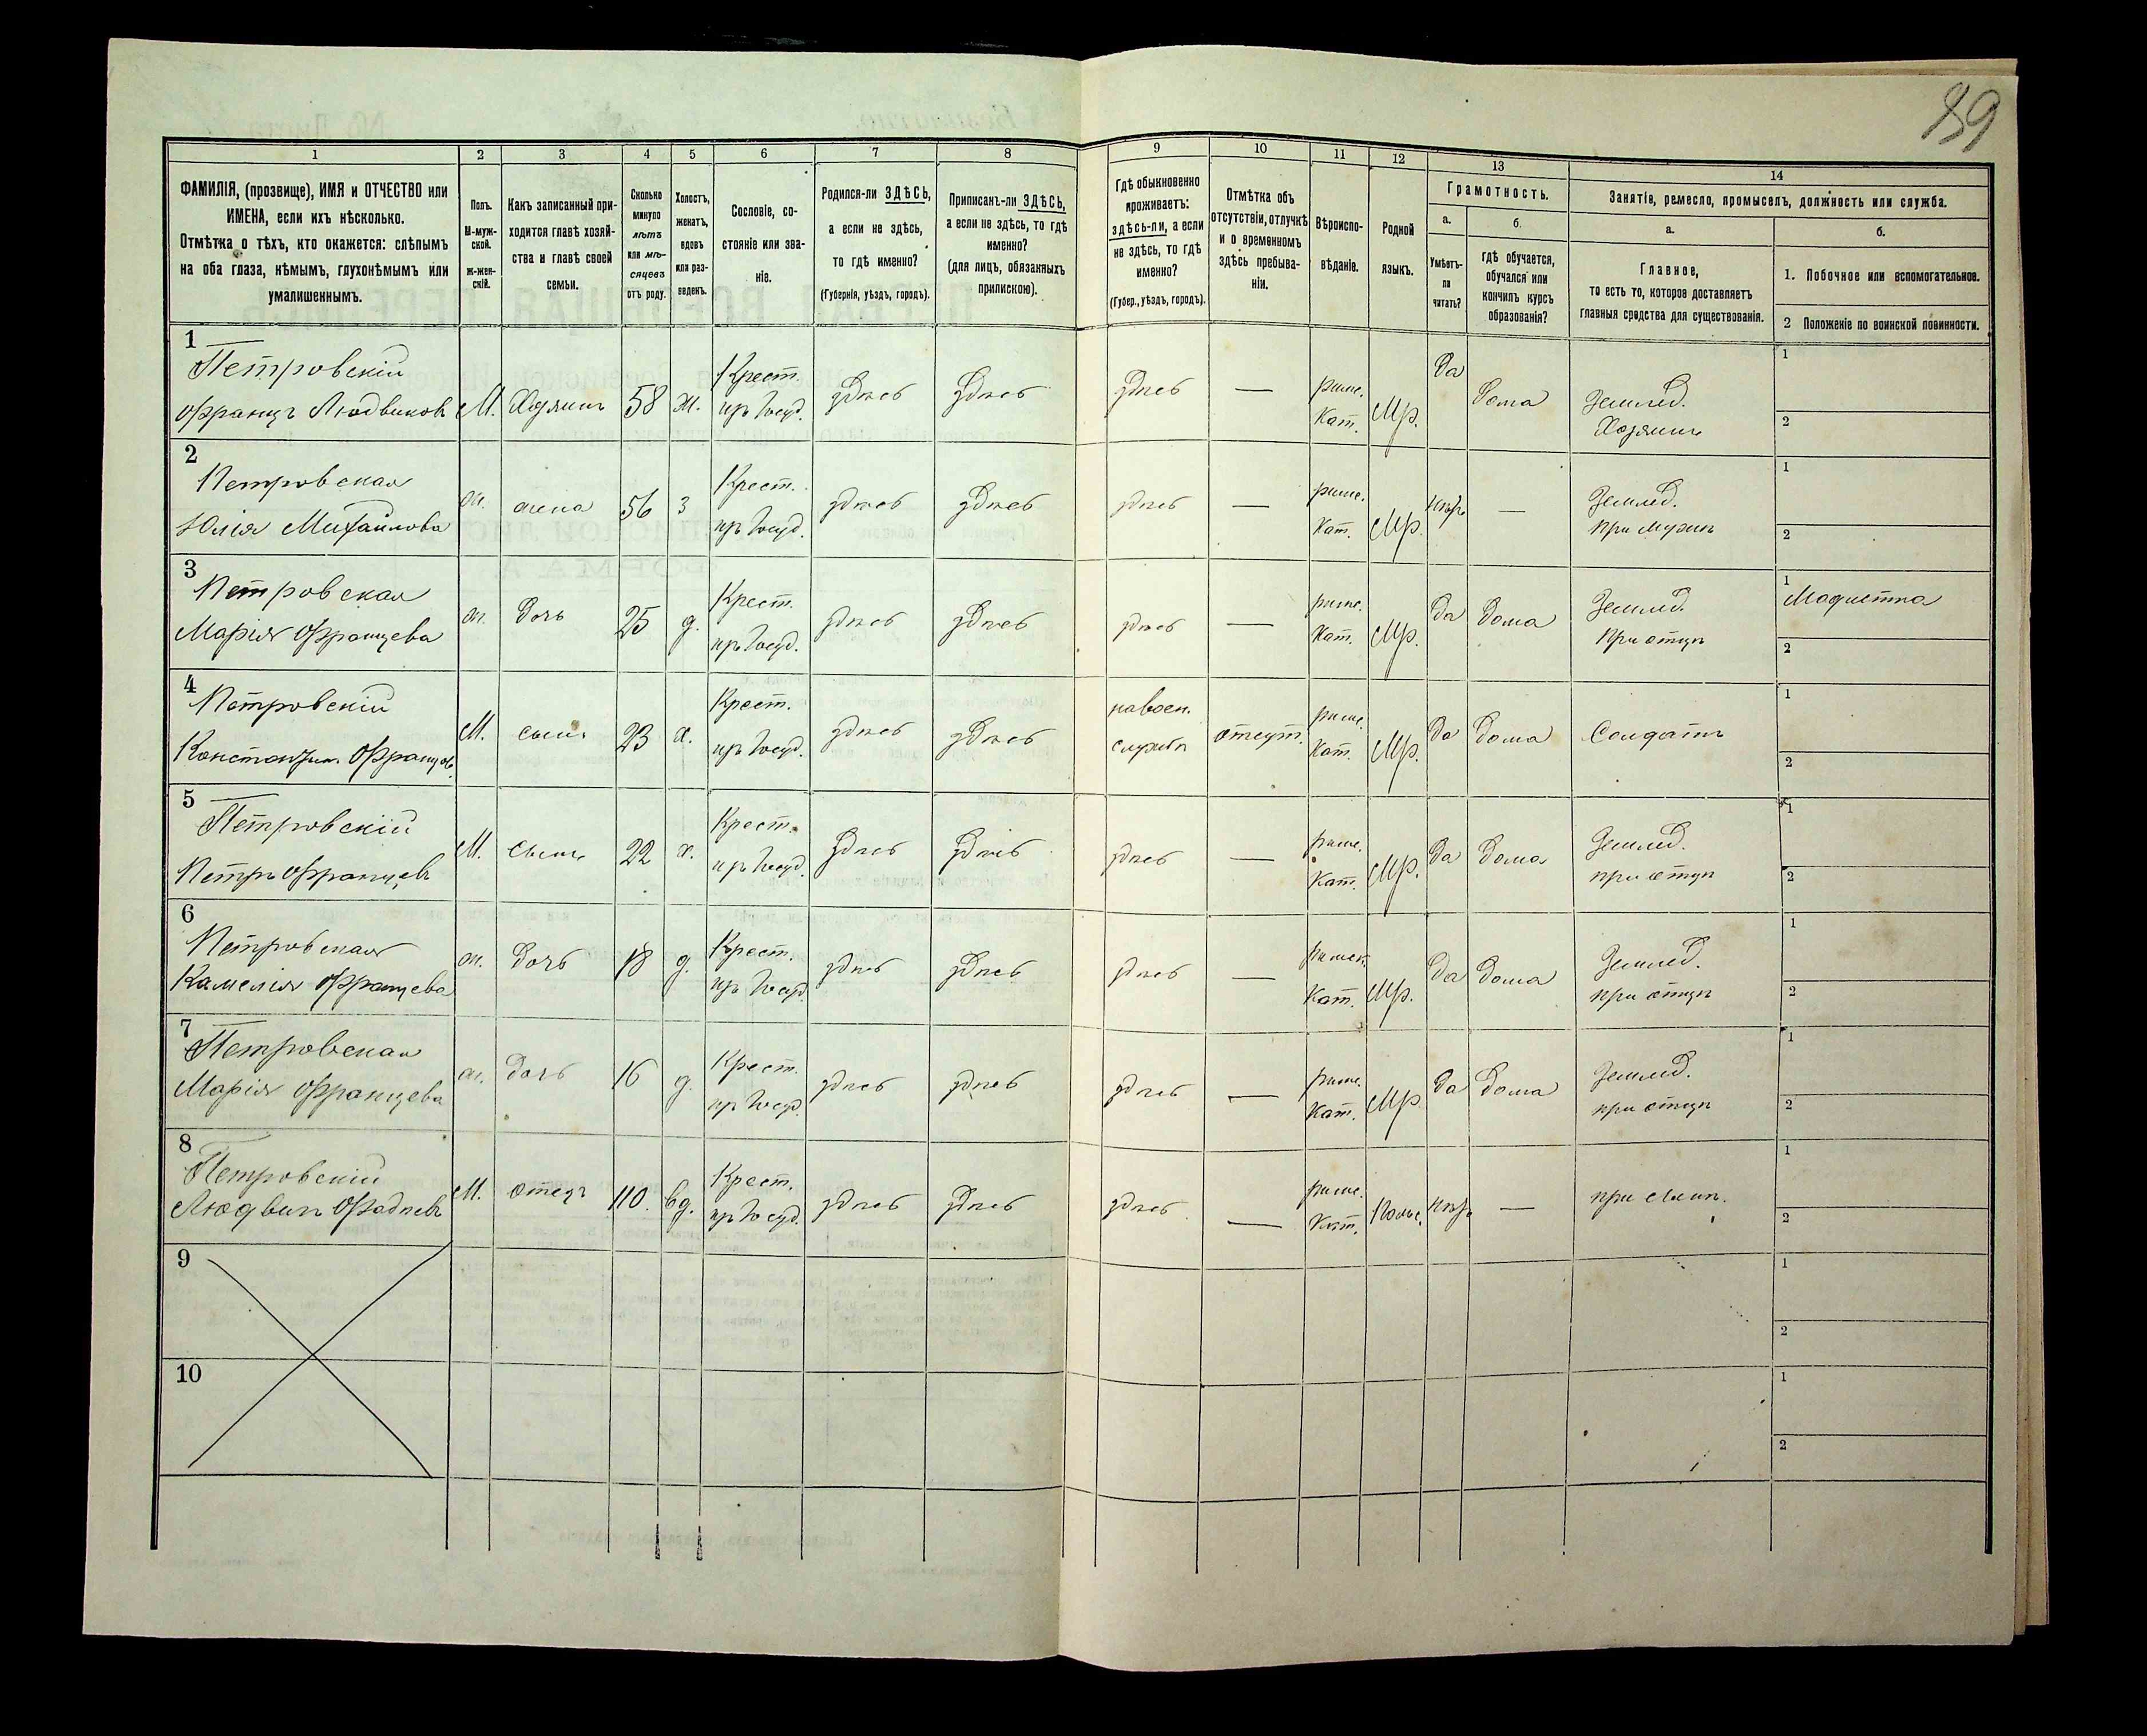 89
1 2 3 4 5 6 7 8 9 10 11 12 13 14
ФАМИЛІЯ, (прозвище), ИМЯ и ОТЧЕСТВО или
ИМЕНА, если ихъ нѣсколько.
Отмѣтка о тѣхъ, кто окажется: слѣпымъ
на оба глаза, нѣмымъ, глухонѣмымъ или
умалишеннымъ.
Полъ.
М-муж-
ской.
ж-жен-
скій.
Какъ записанный при-
ходится главѣ хозяй-
ства и главѣ своей
семьи.
Сколько
минуло
лѣтъ
или мѣ-
сяцевъ
отъ роду.
Холостъ,
женатъ,
вдовъ
или раз-
веденъ.
Сословіе, со-
стояніе или зва-
ніе.
Родился-ли ЗДѢСЬ,
а если не здѣсь,
то гдѣ именно?
(Губернія, уѣздъ, городъ).
Приписанъ-ли ЗДѢСЬ,
а если не здѣсь, то гдѣ
именно?
(для лицъ, обязанныхъ
припискою).
Гдѣ обыкновенно
проживаетъ:
здѣсь-ли, а если
не здѣсь, то гдѣ
именно?
(Губер., уѣздъ, городъ).
Отмѣтка объ
отсутствіи, отлучкѣ
и о временномъ
здѣсь пребыва-
ніи.
Вѣроиспо-
вѣданіе.
Родной
языкъ.
Грамотность.
а.
Умѣетъ-
ли
читать?
б.
Гдѣ обучается,
обучался или
кончилъ курсъ
образованія?
Занятіе, ремесло, промыселъ, должность или служба.
а.
Главное,
то есть то, которое доставляетъ
главныя средства для существованія.
б.
1. Побочное или вспомогательное.
2 Положеніе по воинской повинности.
1
Петровскій
Францъ Людвиковъ М. Хозяинъ 58 ж. Крест.
изъ Госуд. здѣсь здѣсь здѣсь — римс.
Кат. Мр. Да Дома Землед.
Хозяинъ 1
2
2
Петровская
Юлія Михайлова ж. жена 56 з Крест.
изъ Госуд. здѣсь здѣсь здѣсь — римс.
Кат. Мр. нѣтъ — Землед.
При мужѣ 1
2
3
Петровская
Марія Францева ж. дочь 25 д. Крест.
изъ Госуд. здѣсь здѣсь здѣсь — римс.
Кат. Мр. Да Дома Землед.
При отцѣ 1
Модистка
2
4
Петровскій
Константинъ Францовъ М. сынъ 23 х. Крест.
изъ Госуд. здѣсь здѣсь на воен.
службѣ отсут. римс.
Кат. Мр. Да Дома Солдатъ 1
2
5
Петровскій
Петръ Францевъ М. Сынъ 22 х. Крест.
изъ Госуд. здѣсь здѣсь здѣсь — римс.
Кат. Мр. Да Дома Землед.
при отцѣ 1
2
6
Петровская
Камелія Францева ж. Дочь 18 д. Крест.
изъ Госуд. здѣсь здѣсь здѣсь — римск.
Кат. Мр. Да Дома Землед.
при отцѣ 1
2
7
Петровская
Марія Францева ж. Дочь 16 д. Крест.
изъ Госуд. здѣсь здѣсь здѣсь — римс.
Кат. Мр. Да Дома Землед.
при отцѣ 1
2
8
Петровскій
Людвикъ Фадѣевъ М. Отецъ 110. вд. Крест.
изъ Госуд. здѣсь здѣсь здѣсь — римс.
Кат. Польс. нѣтъ — при сынѣ. 1
2
9 1
2
10 1
2